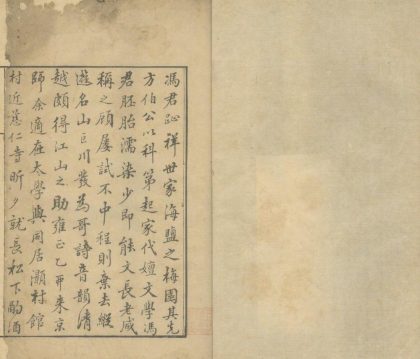 馮君趾祥世家海鹽之梅園其先
方伯公以科第起家代嬗文學馮
君胚胎濡染少即能文長老咸
稱之顧屢試不中程則棄去縱
遊名山巨川發為哥詩音韻清
越頗得江山之助雍正乙卯来京
師余適在太學與同居灝村館
村近慈仁寺昕夕就長松下酌酒